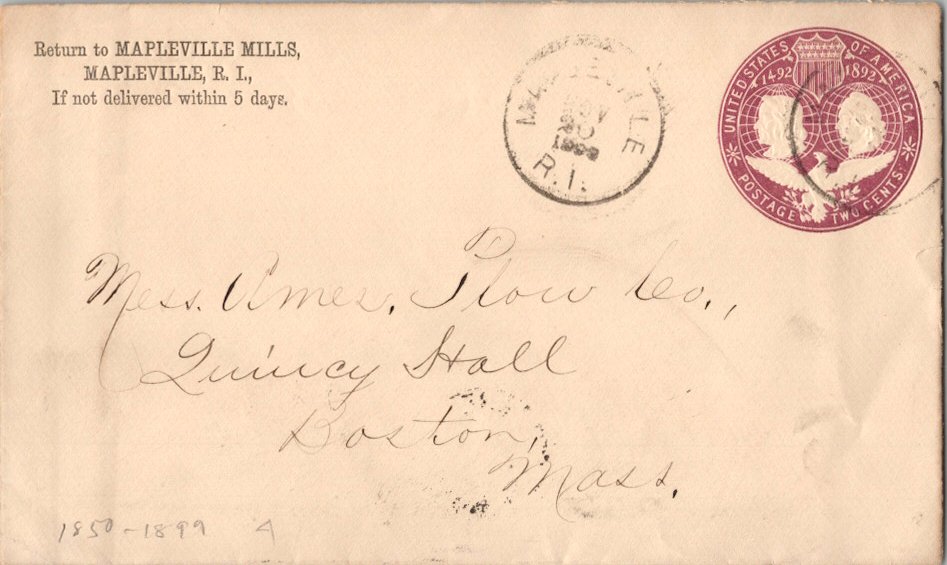 Return to MAPLEVILLE MILLS,
MAPLEVILLE, R. I.,
If not delivered within 5 days.
MAPLEVILLE
NOV
R.I.
UNITED STATES OF AMERICA
1492 1892
POSTAGE TWO CENTS
Mess. Ames. Plow Co.,
Quincy Hall
Boston,
Mass.
1850-1899